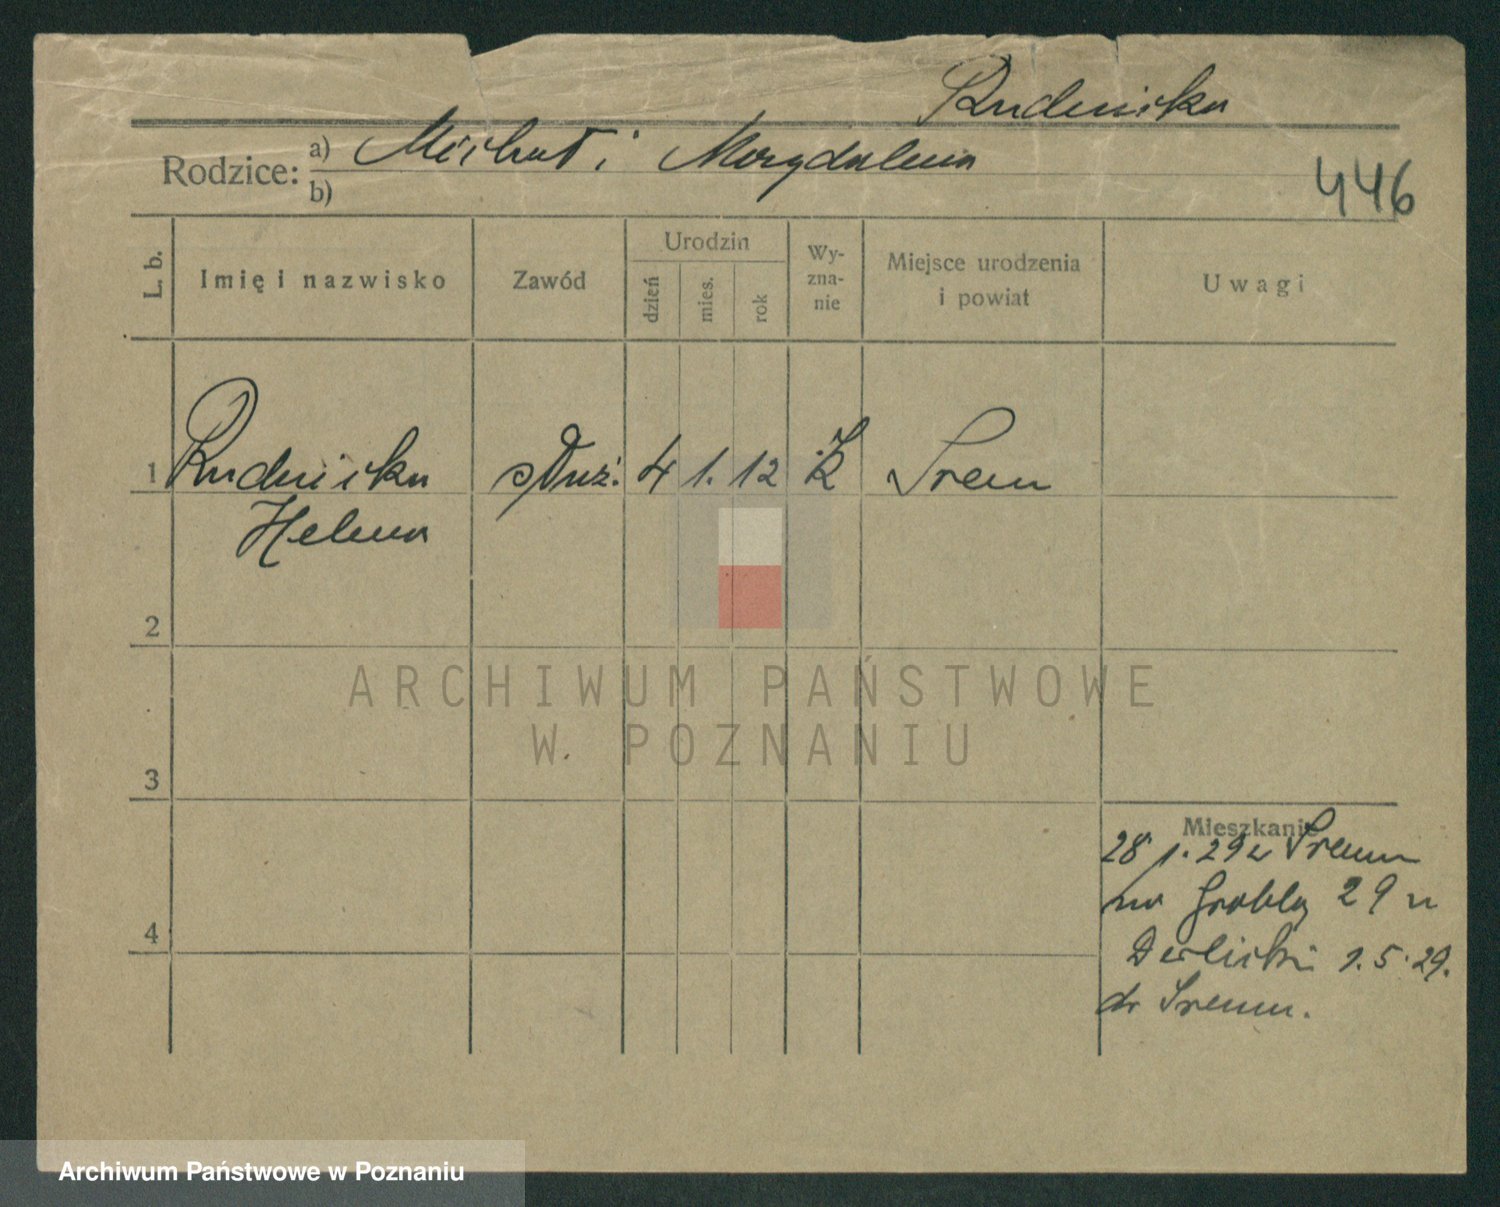 Rudnicka
Rodzice: a) Michał i Magdalena
b)
446
L. b.
Imię i nazwisko
Zawód
Urodzin
dzień
mies.
rok
Wy-
zna-
nie
Miejsce urodzenia
i powiat
Uwagi
1 Rudnicka służ. 4 1. 12 K Śrem
Helena
2
3
4
Mieszkanie
28 1. 29 z Śremu
na Groblę 29 u
1.5.29.
do Śremu.
ARCHIWUM PAŃSTWOWE
W POZNANIU
Archiwum Państwowe w Poznaniu